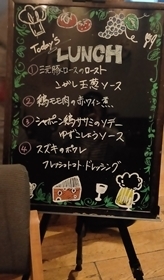 Today's
LUNCH
① 三元豚ロースのロースト
こがし玉葱ソース
② 鶏モモ肉の赤ワイン煮
③ シャポーン鶏ササミのソテー
ゆずこしょうソース
④ スズキのポワレ
フレッシュトマトドレッシング